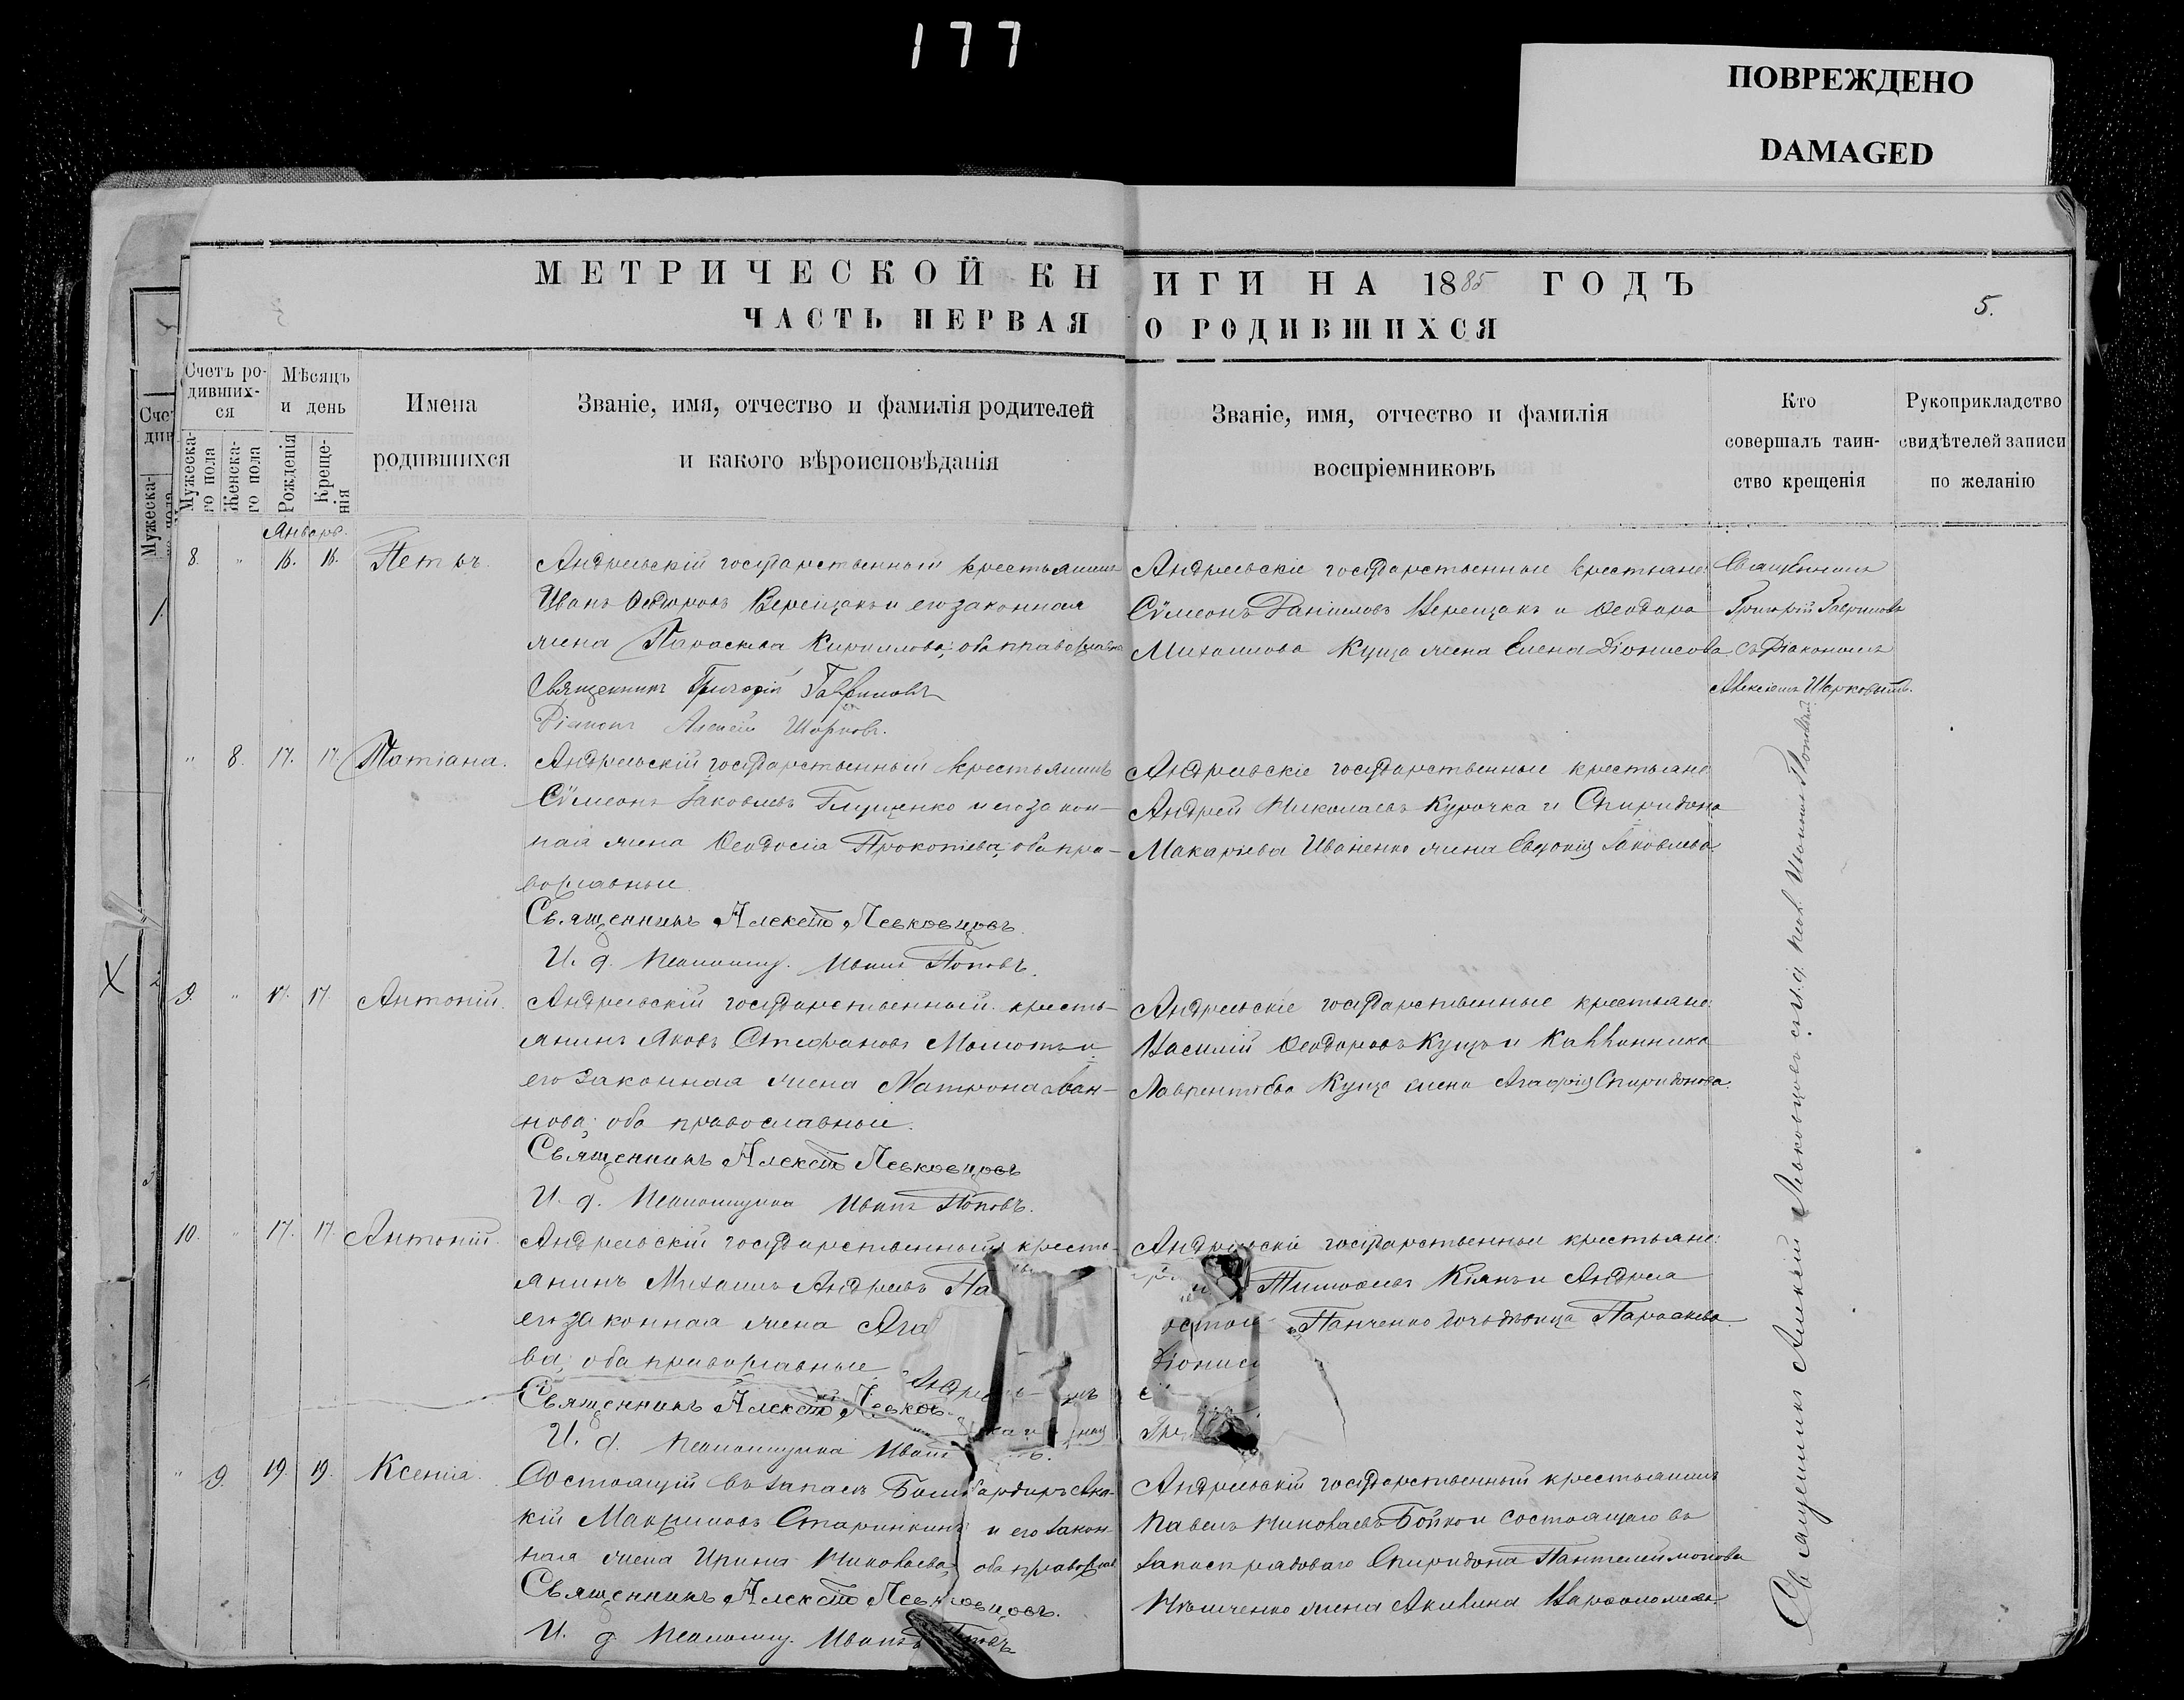 177
ПОВРЕЖДЕНО
DAMAGED
МЕТРИЧЕСКОЙ КНИГИ НА 1885 ГОДЪ
5.
ЧАСТЬ ПЕРВАЯ О РОДИВШИХСЯ
Счетъ родившихся
Мужескаго пола
Женскаго пола
Мѣсяцъ и день
Рожденія
Крещенія
Имена родившихся
Званіе, имя, отчество и фамилія родителей
и какого вѣроисповѣданія
Званіе, имя, отчество и фамилія
воспріемниковъ
Кто
совершалъ таин-
ство крещенія
Рукоприкладство
свидѣтелей записи
по желанію
Январь.
8. " 16. 16. Петръ.
Андреевскій государственный крестьянинъ
Иванъ Ѳедоровъ Верещакъ и его законная
жена Параскева Кириллова; оба православн
Священникъ Григорій Гавриловъ
Діаконъ Алексѣй Шарковъ.
Андреевскіе государственные крестьяне:
Сѵмеонъ Даніиловъ Верещакъ и Ѳеодора
Михаилова Куца жена Елена Діонисова
Священникъ
Григорій Гавриловъ
съ Діакономъ
Алексіемъ Шарковымъ.
" 8. 17. 17. Татіана.
Андреевскій государственный крестьянинъ
Сѵмеонъ Іаковлевъ Глущенко и его закон-
ная жена Ѳеодосія Прокопіева; оба пра-
вославные.
Священникъ Алексѣй Левковцовъ.
И. д. Псаломщ. Иванъ Поповъ.
Андреевскіе государственные крестьяне
Андрей Николаевъ Курочка и Спиридона
Макаріева Иваненко жена Евдокія Іаковлева.
9. " 17. 17. Антоній.
Андреевскій государственный кресть-
янинъ Яковъ Стефановъ и
его законная жена Матрона Иван-
нова; оба православные.
Священникъ Алексѣй Левковцовъ
И. д. Псаломщика Иванъ Поповъ.
Андреевскіе государственные крестьяне:
Василій Ѳеодоровъ Куцъ и Каллинника
Лаврентіева Куца жена Агафія Спиридонова.
10. " 17. 17. Антоній.
Андреевскій государственный кресть-
янинъ Михаилъ Андреевъ Па
его законная жена Ага
ва; оба православные
Священникъ Алексѣй Левков
И. д. Псаломщика Иванъ
Андреевскіе государственные крестьяне:
Тимоѳеевъ Кіянъ и Андрея
Панченко дочь дѣвица Параскева
Діониси
" 9. 19. 19. Ксенія.
Состоящій въ запасѣ Бомбардиръ Ака-
кій Максимовъ Старинкинъ и его закон-
ная жена Ирина Николаева; оба православ
Священникъ Алексѣй Левковцовъ.
И. д. Псаломщ. Иванъ Поповъ
Андреевскій государственный крестьянинъ
Павелъ Николаевъ Бойко и состоящаго въ
запасѣ рядоваго Спиридона Пантелеймонова
жена Акилина Варѳоломеева.
Священникъ Алексѣй Левковцовъ съ и. д. псал. Иваномъ Поповымъ